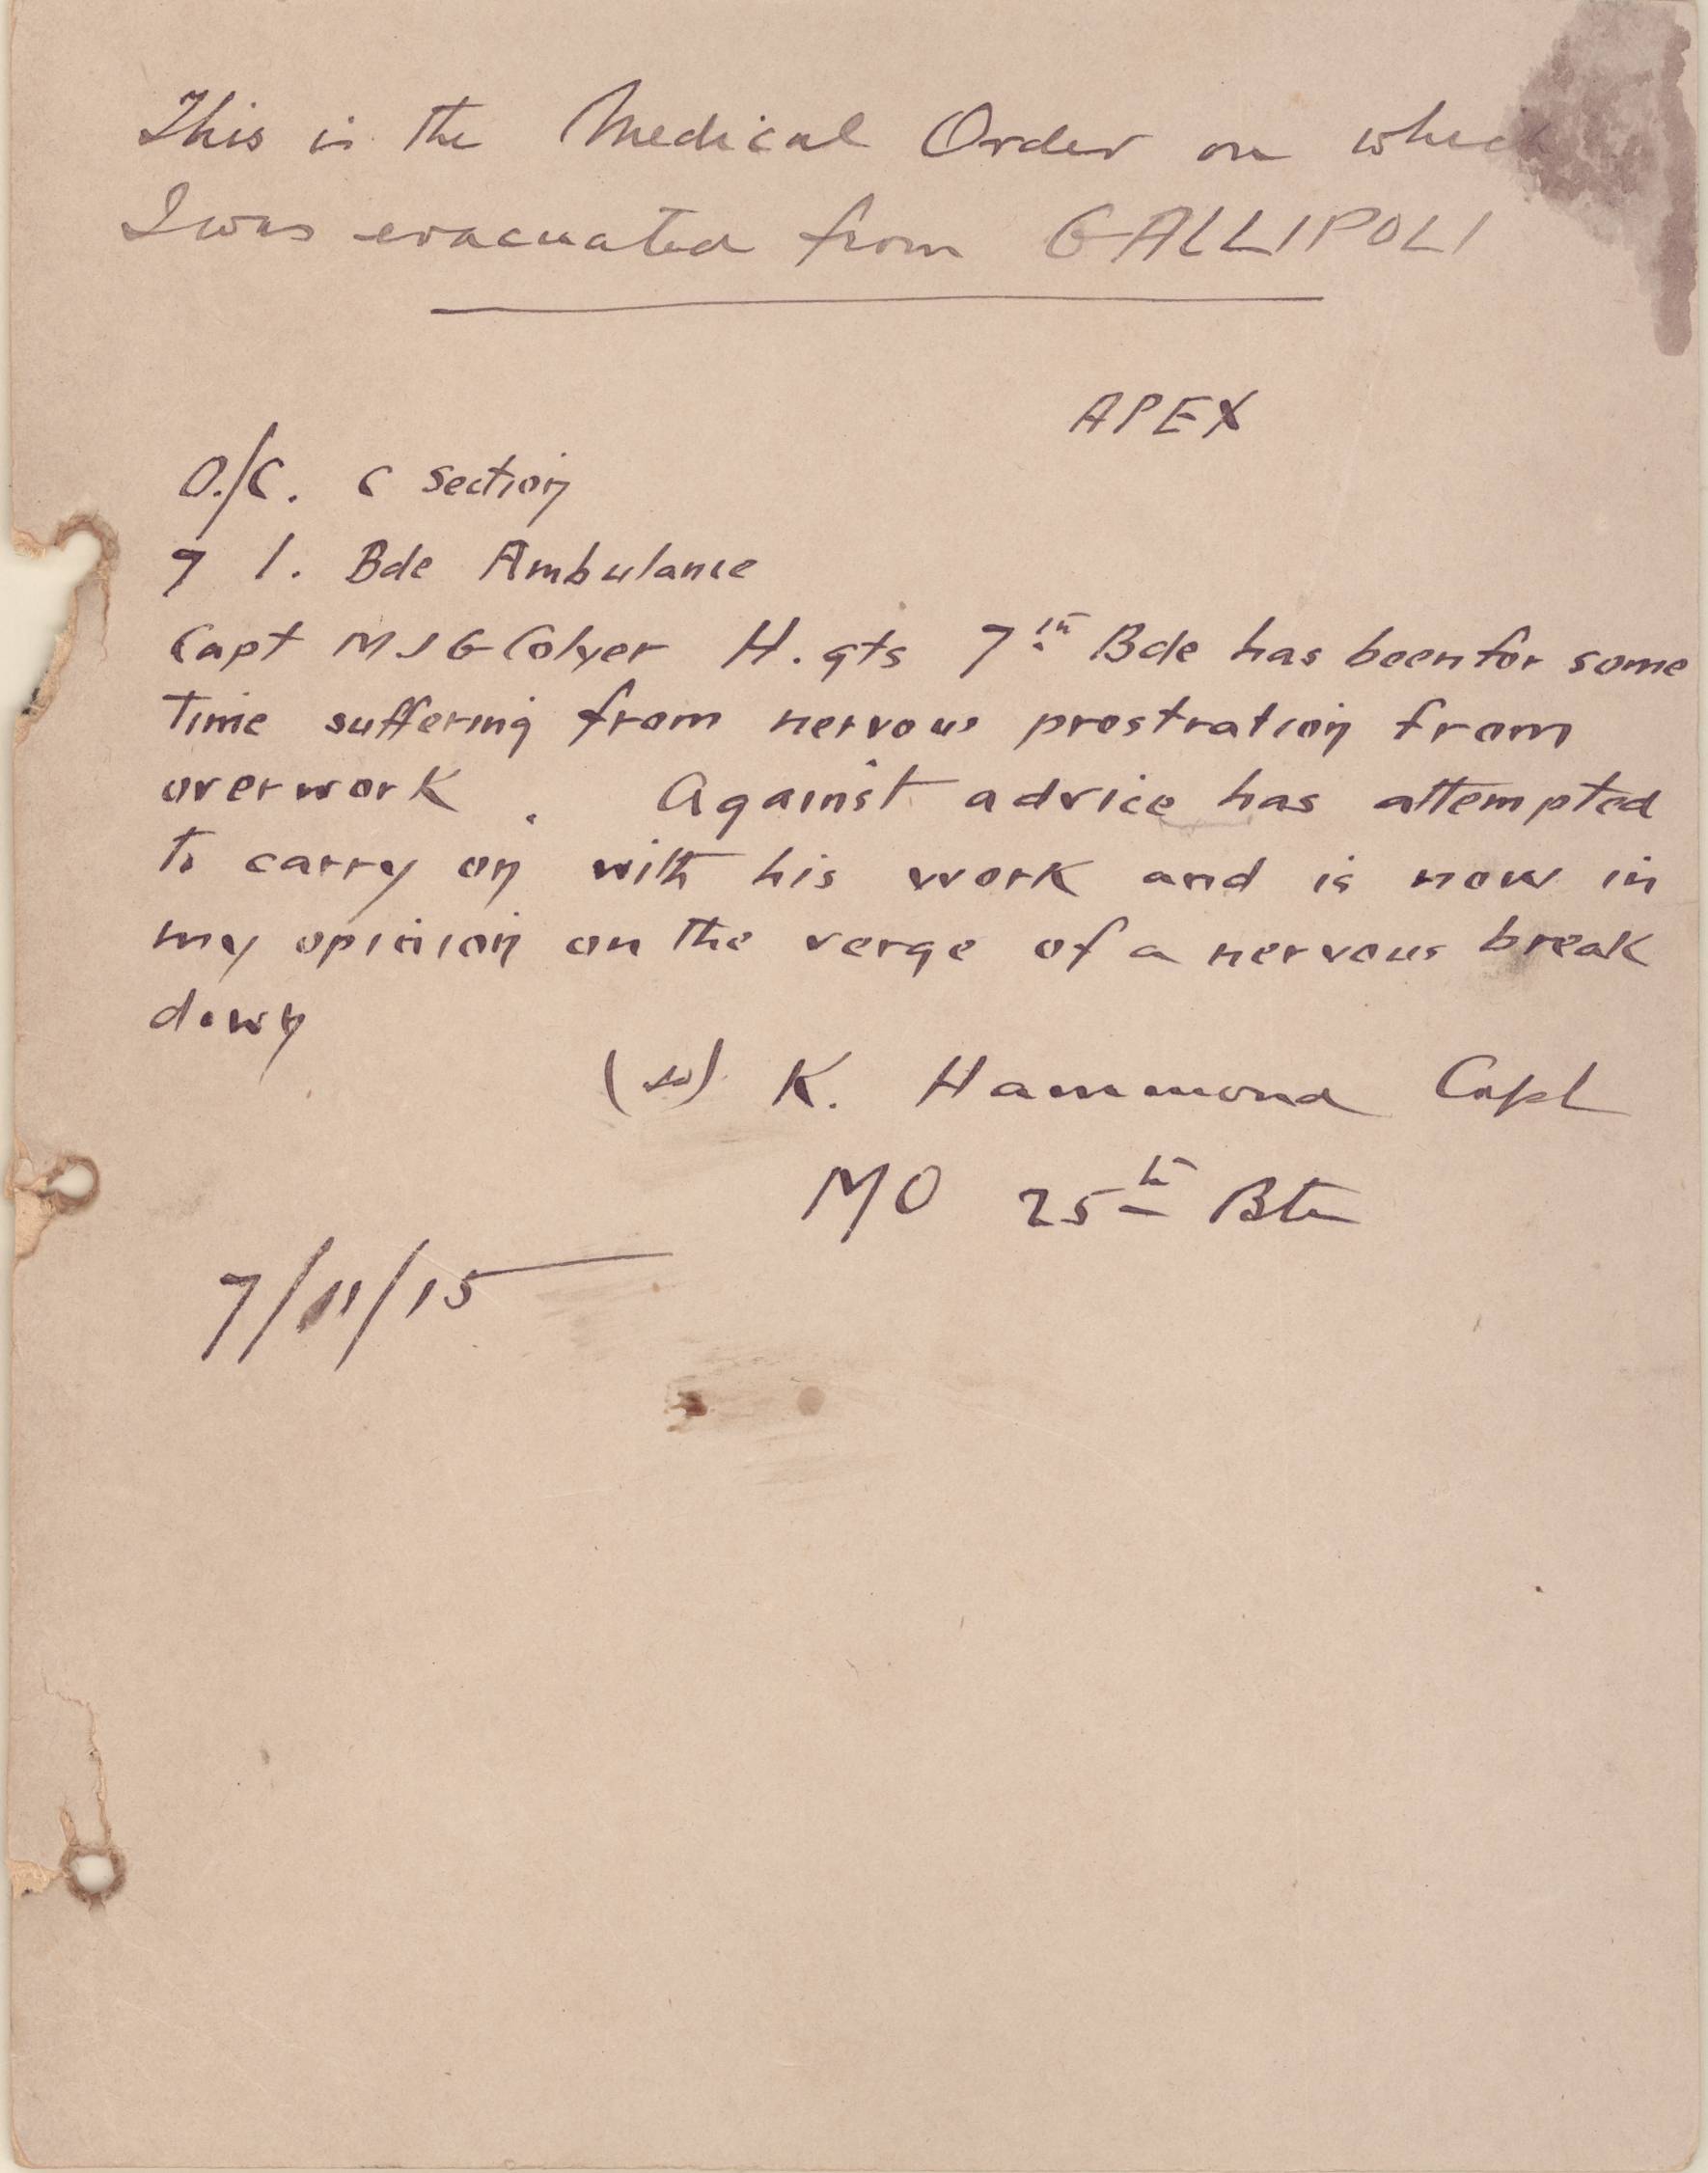 This is the Medical Order on which
I was evacuated from GALLIPOLI
APEX
O./C. C Section
7 1. Bde Ambulance
Capt M J G Colyer H. qts 7th Bde has been for some
Time suffering from nervous prostration from
overwork. Against advice has attempted
to carry on with his work and is now in
my opinion on the verge of a nervous break
down
(sd) K. Hammond Capt
MO 25th Btn
7/11/15